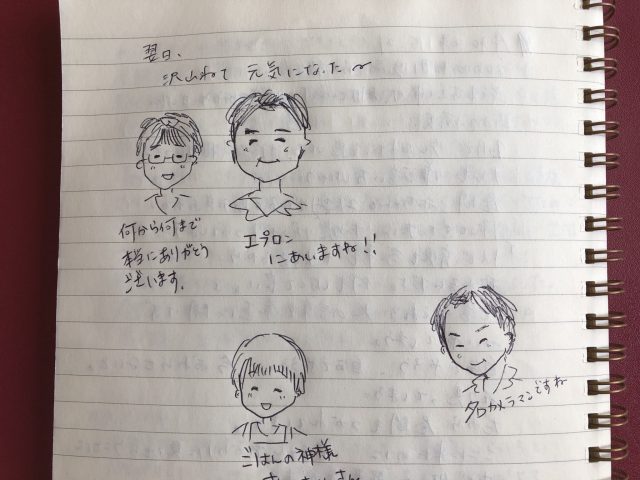 翌日、
沢山ねて 元気になった〜
何から何まで
本当にありがとう
ございます。
エプロン
にあいますね!!
名カメラマンですね
ごはんの神様